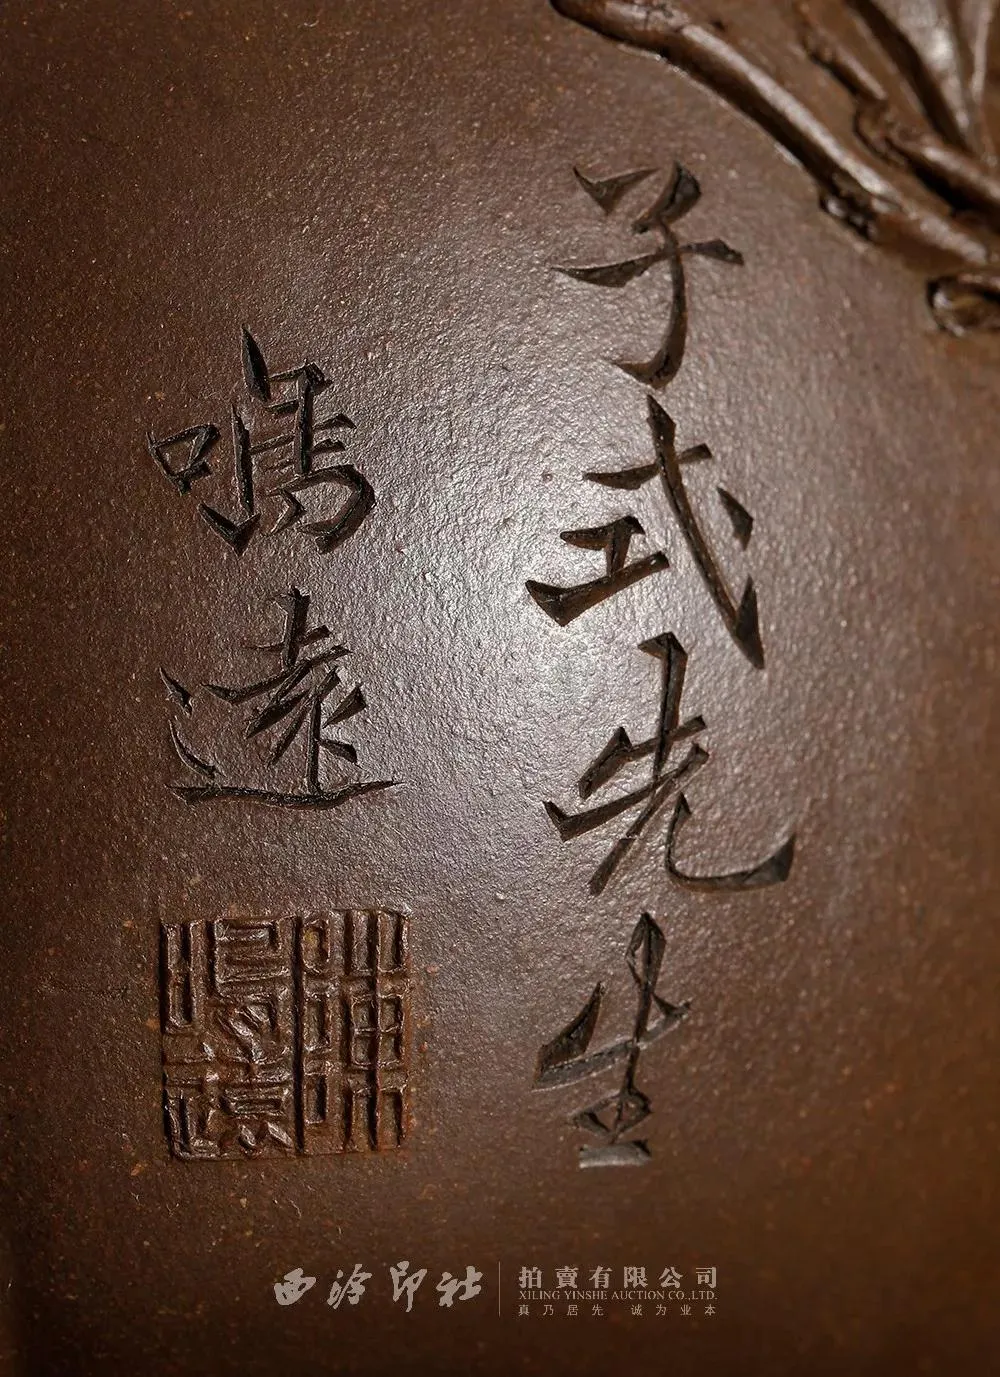 子式先生
鳴遠
西泠印社
拍賣有限公司
XILING YINSHE AUCTION CO.,LTD.
真乃居先 诚为业本